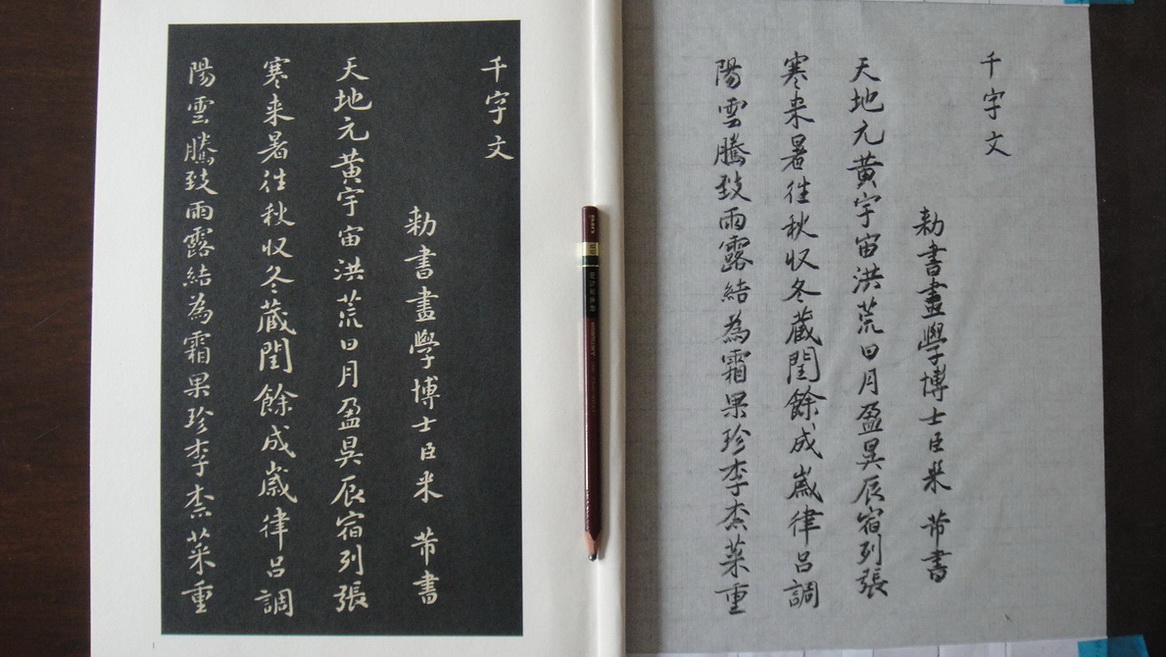 千字文
勑書畫學博士臣米芾書
天地元黃宇宙洪荒日月盈昃辰宿列張
寒来暑往秋収冬蔵閏餘成嵗律呂調
陽雲騰致雨露結為霜果珍李柰菜重
千字文
勑書畫學博士臣米芾書
天地元黃宇宙洪荒日月盈昃辰宿列張
寒来暑往秋収冬蔵閏餘成嵗律呂調
陽雲騰致雨露結為霜果珍李柰菜重